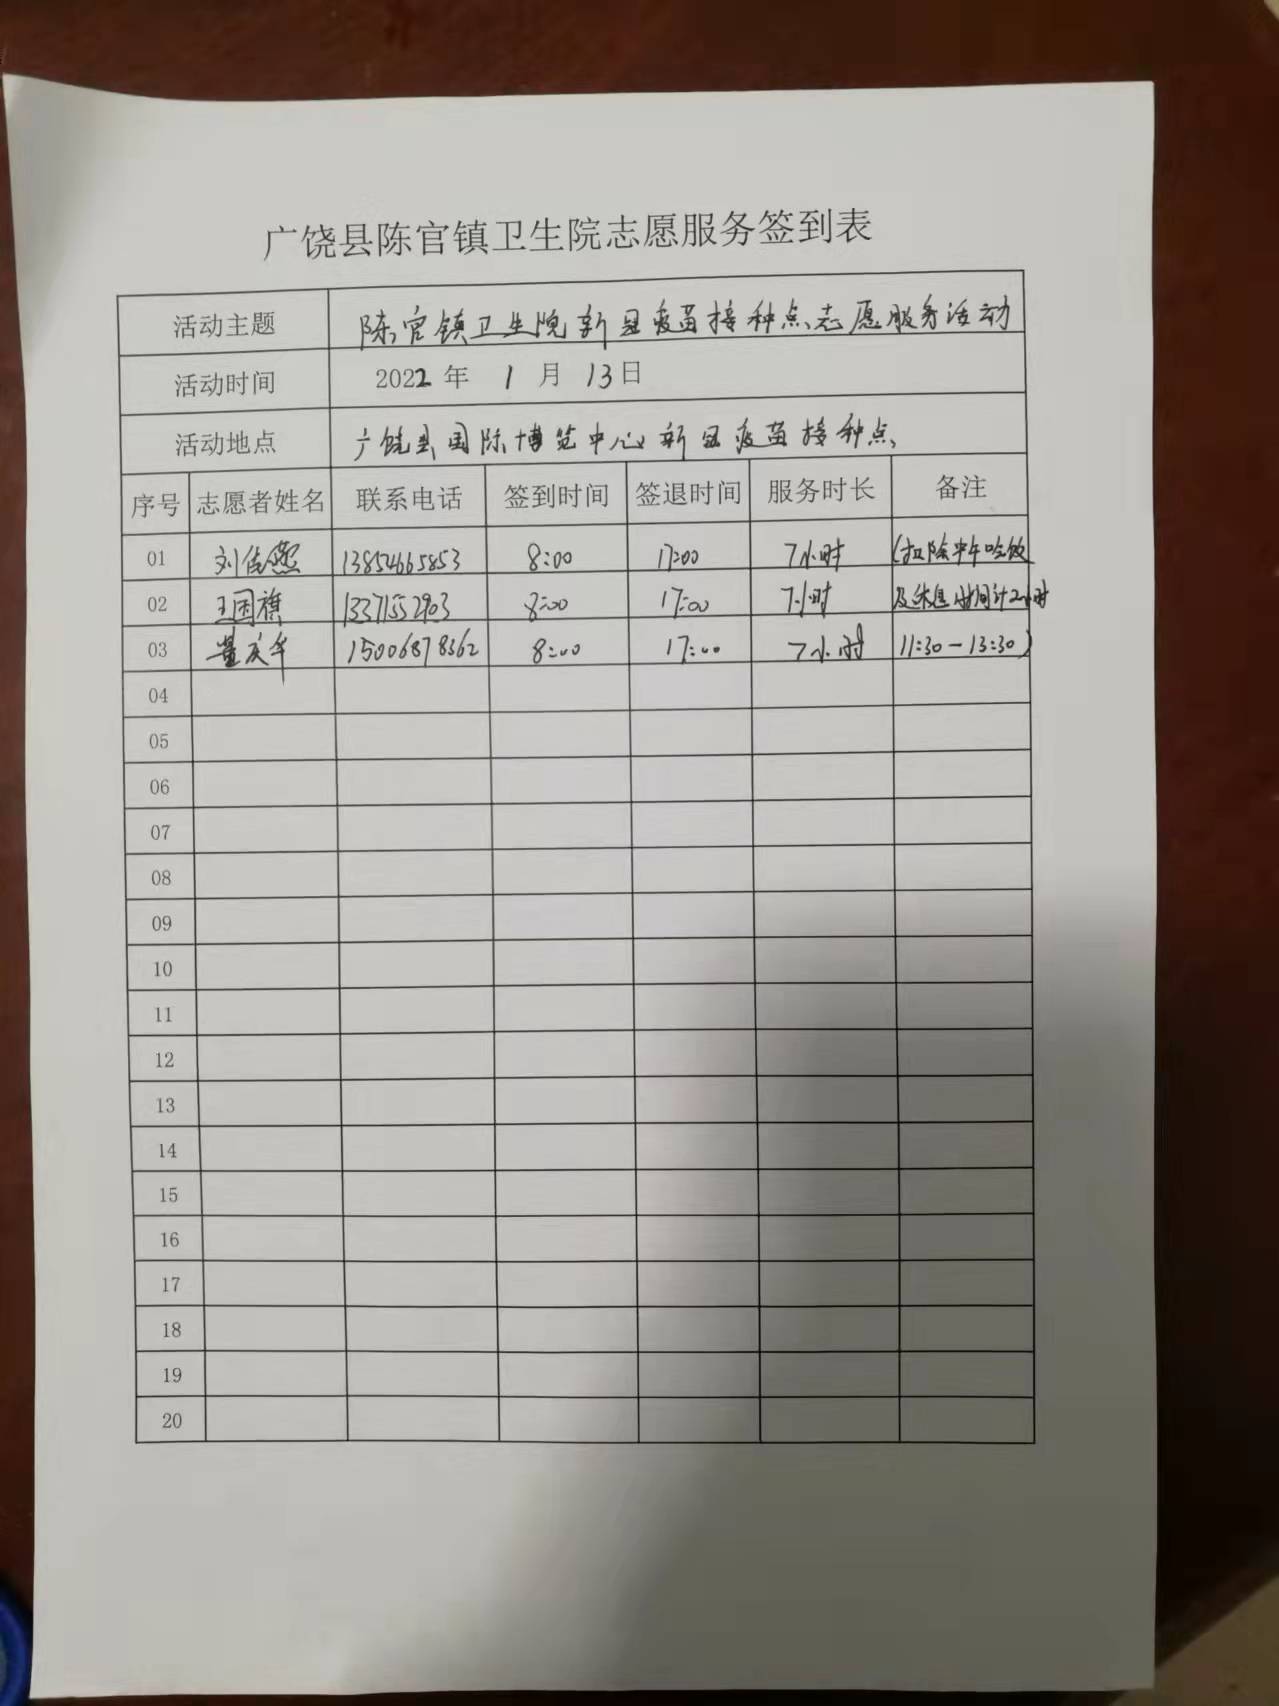 广饶县陈官镇卫生院志愿服务签到表
活动主题 陈官镇卫生院新冠疫苗接种点志愿服务活动
活动时间 2022年 1月 13日
活动地点 广饶县国际博览中心新冠疫苗接种点
序号 志愿者姓名 联系电话 签到时间 签退时间 服务时长 备注
01 刘佳燕 13854665853 8:00 17:00 7小时 (扣除中午吃饭
02 王国旗 13371552903 8:00 17:00 7小时 及休息时间计2小时
03 董庆华 15006878362 8:00 17:00 7小时 11:30-13:30)
04
05
06
07
08
09
10
11
12
13
14
15
16
17
18
19
20